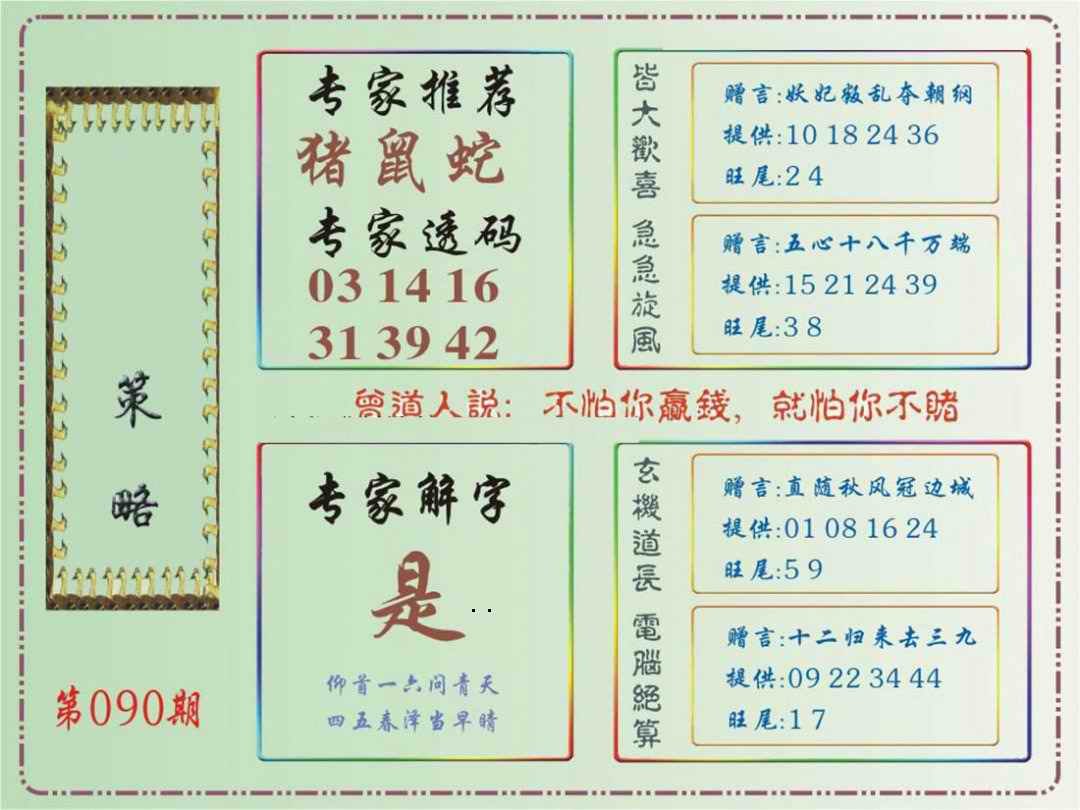 策略
第090期
专家推荐
猪鼠蛇
专家透码
03 14 16
31 39 42
皆大歡喜
赠言:妖妃叛乱夺朝纲
提供:10 18 24 36
旺尾:2 4
急急旋風
赠言:五心十八千万端
提供:15 21 24 39
旺尾:3 8
曾道人説: 不怕你贏錢, 就怕你不賭
专家解字
是
仰首一六问青天
四五春泽当早晴
玄機道長
赠言:直随秋风冠边城
提供:01 08 16 24
旺尾:5 9
電腦絕算
赠言:十二归来去三九
提供:09 22 34 44
旺尾:1 7